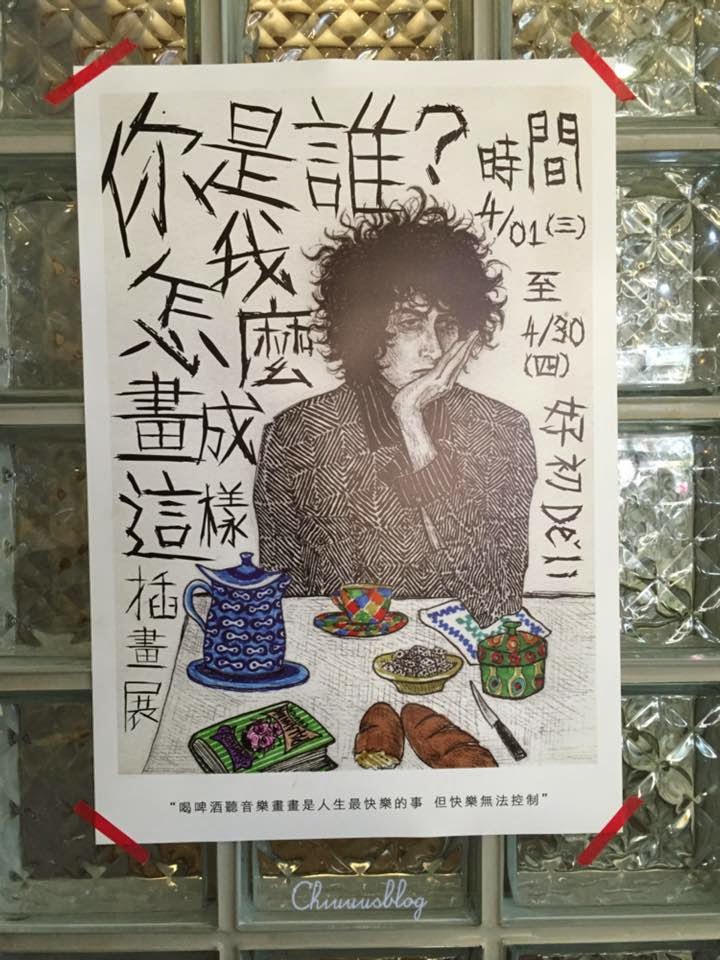 你是誰?
我
怎麼
畫成
這樣
插畫展
時間
4/01(三)
至
4/30
(四)
好初Deli
“喝啤酒聽音樂畫畫是人生最快樂的事 但快樂無法控制”
Chiuuusblog